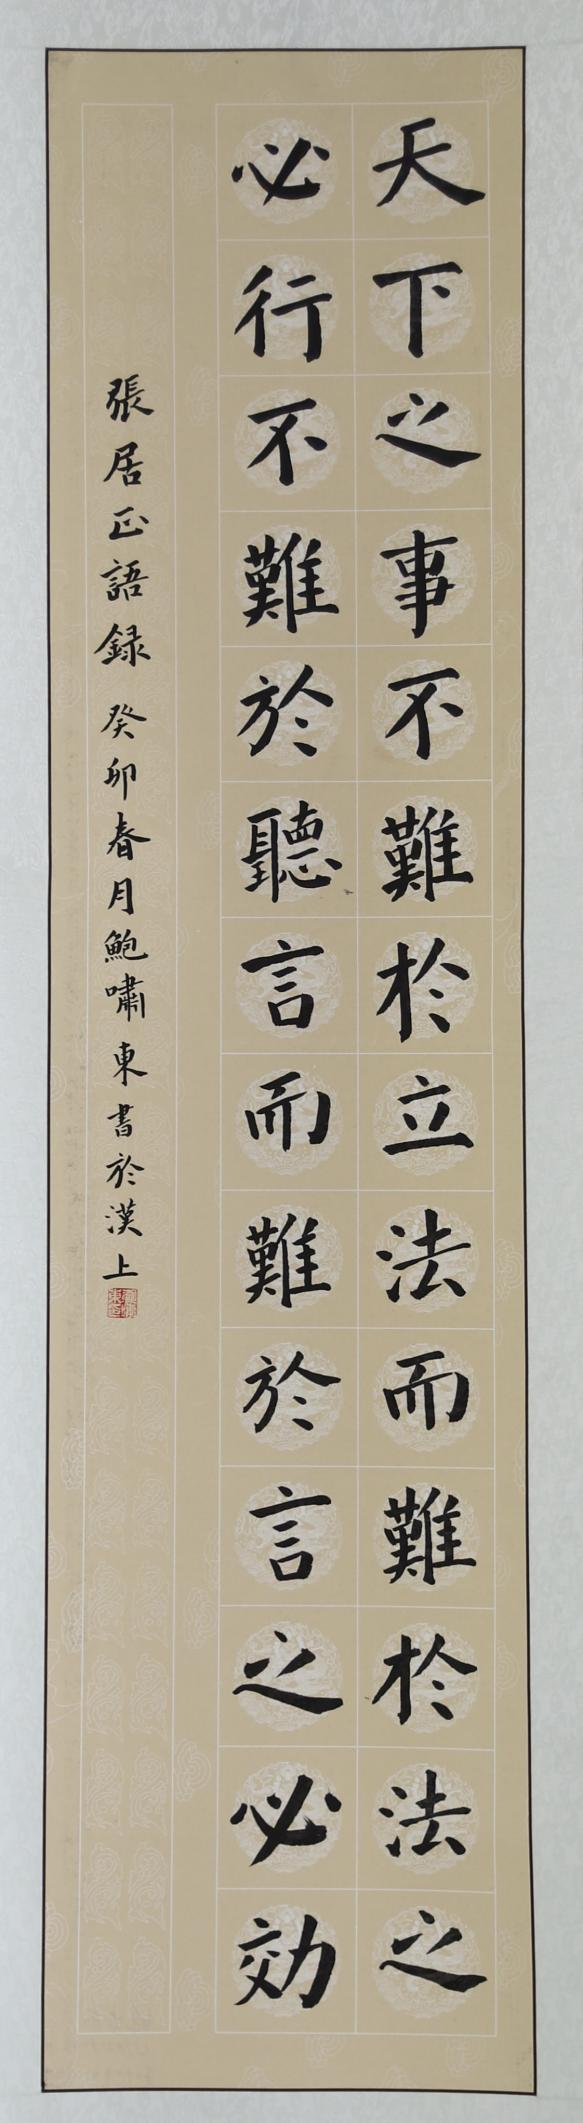 天下之事不難於立法而難於法之
必行不難於聽言而難於言之必効
張居正語録 癸卯春月鮑嘯東書於漢上